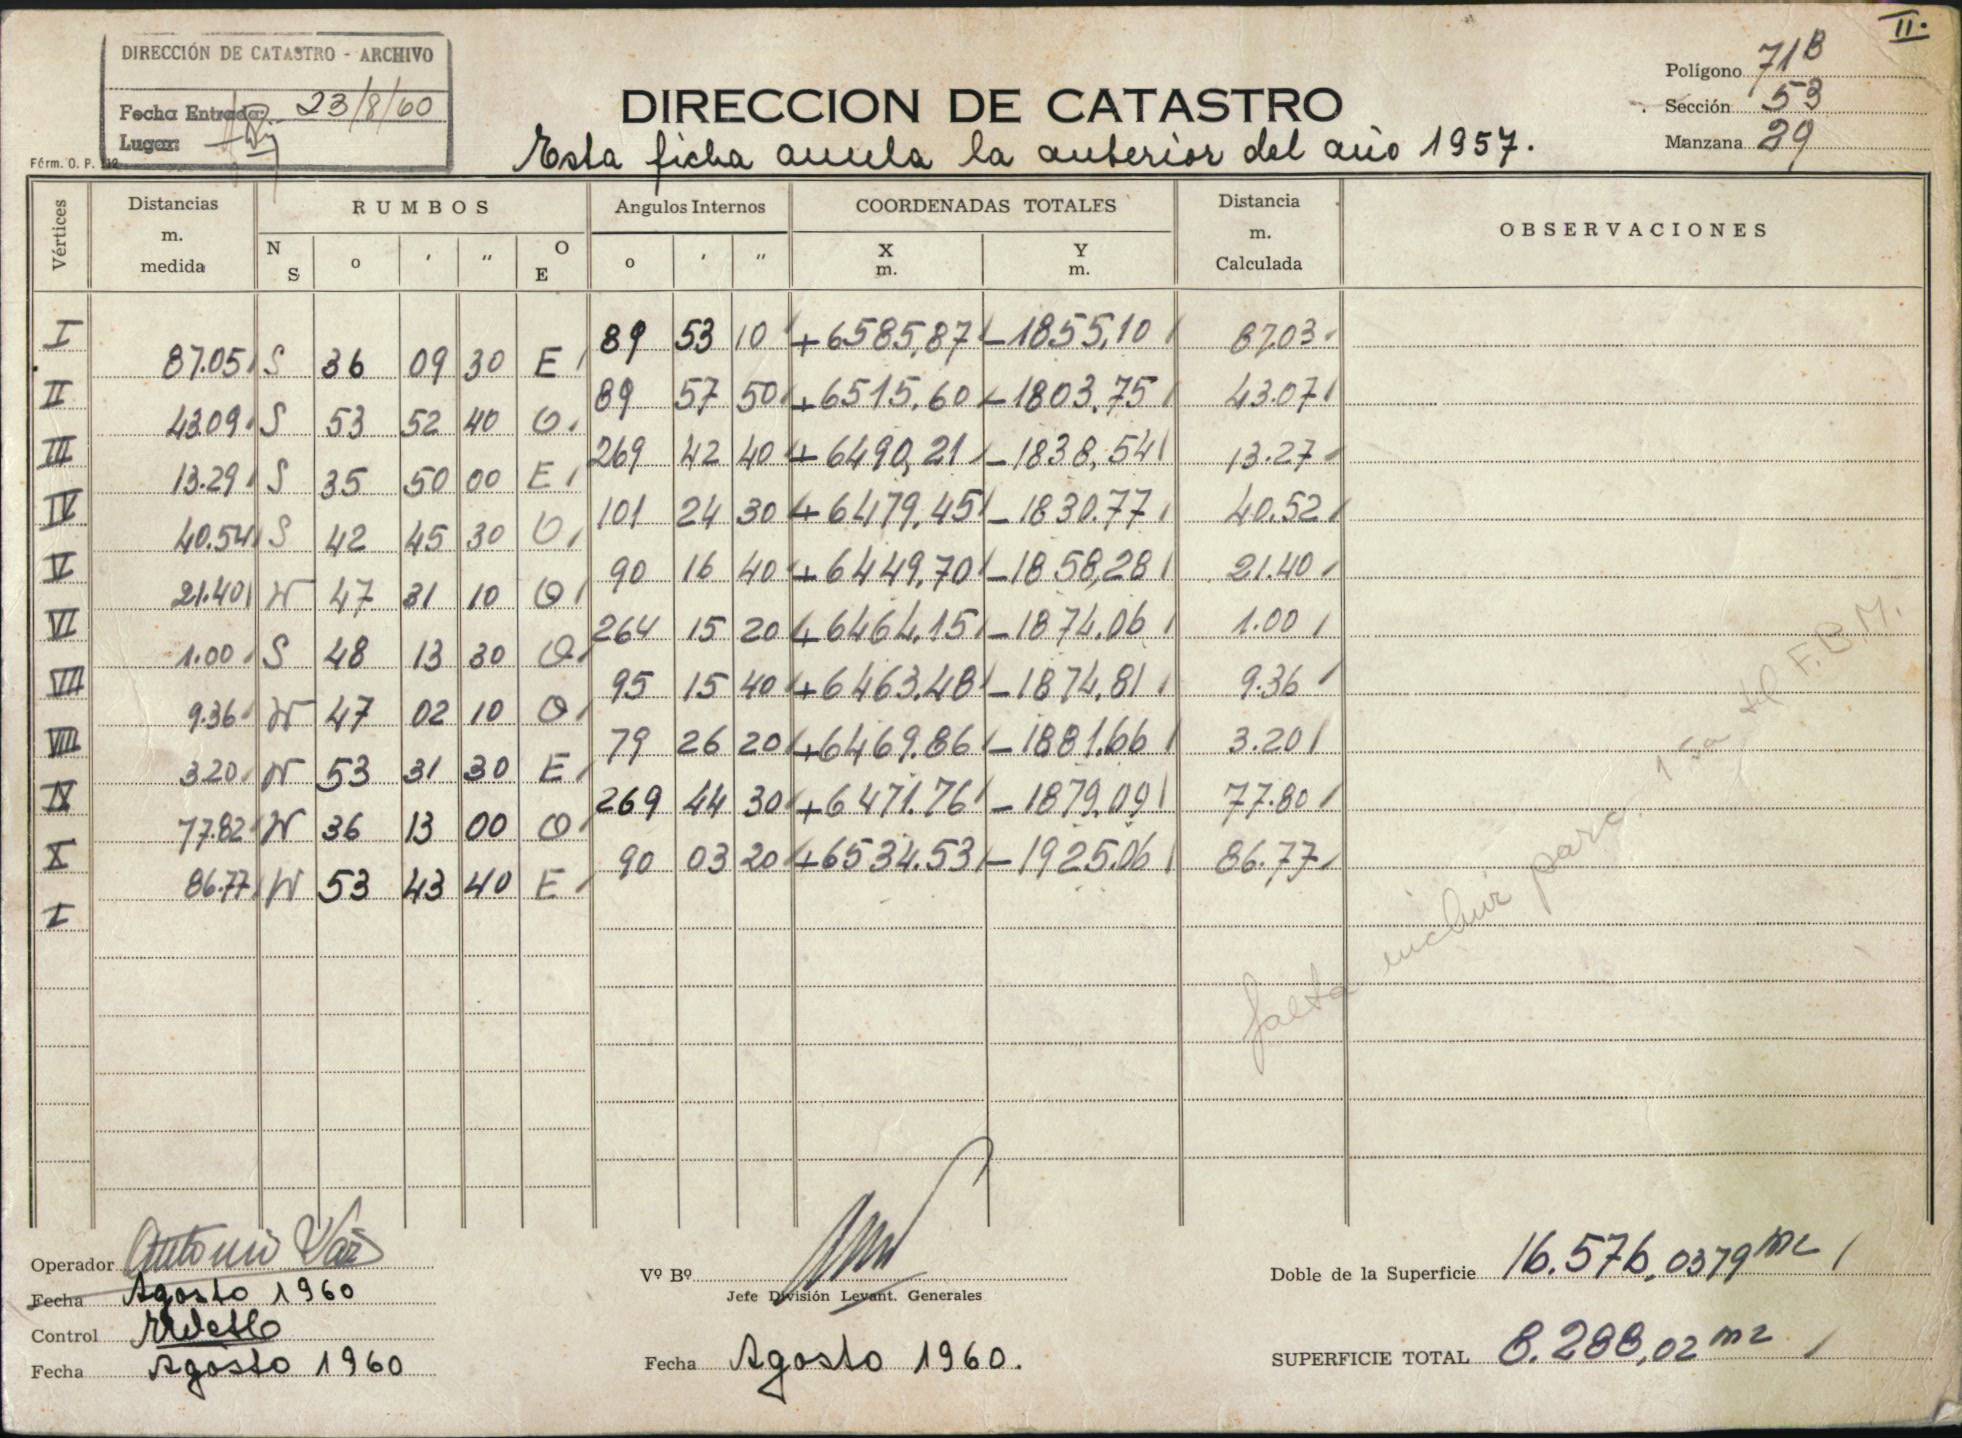 II.
DIRECCIÓN DE CATASTRO - ARCHIVO
Fecha Entrada: 23/8/60
Lugar:
Fórm. O. P. 112
DIRECCION DE CATASTRO
Esta ficha anula la anterior del año 1957.
Polígono 71B
Sección 53
Manzana 29
Vértices Distancias m. medida RUMBOS Angulos Internos COORDENADAS TOTALES Distancia m. Calculada OBSERVACIONES
N S o ' " O E o ' " X m. Y m.
I 89 53 10 +6585,87 -1855,10 87.03
87.05 S 36 09 30 E
II 89 57 50 +6515.60 -1803.75 43.07
43.09 S 53 52 40 O
III 269 42 40 +6490,21 -1838,54 13.27
13.29 S 35 50 00 E
IV 101 24 30 +6479,45 -1830.77 40.52
40.54 S 42 45 30 O
V 90 16 40 +6449,70 -1858,28 21.40
21.40 N 47 31 10 O
VI 264 15 20 +6464,15 -1874.06 1.00
1.00 S 48 13 30 O
VII 95 15 40 +6463.48 -1874,81 9.36
9.36 N 47 02 10 O
VIII 79 26 20 +6469.86 -1881.66 3.20
3.20 N 53 31 30 E
IX 269 44 30 +6471.76 -1879,09 77.80
77.82 N 36 13 00 O
X 90 03 20 +6534.53 -1925.06 86.77
86.77 N 53 43 40 E
I
falta incluir para 1 F.B.M.
Operador Antonio
Fecha Agosto 1960
Control
Fecha Agosto 1960
Vº Bº
Jefe División Levant. Generales
Fecha Agosto 1960.
Doble de la Superficie 16.576,0379 m2
SUPERFICIE TOTAL 8.288,02 m2